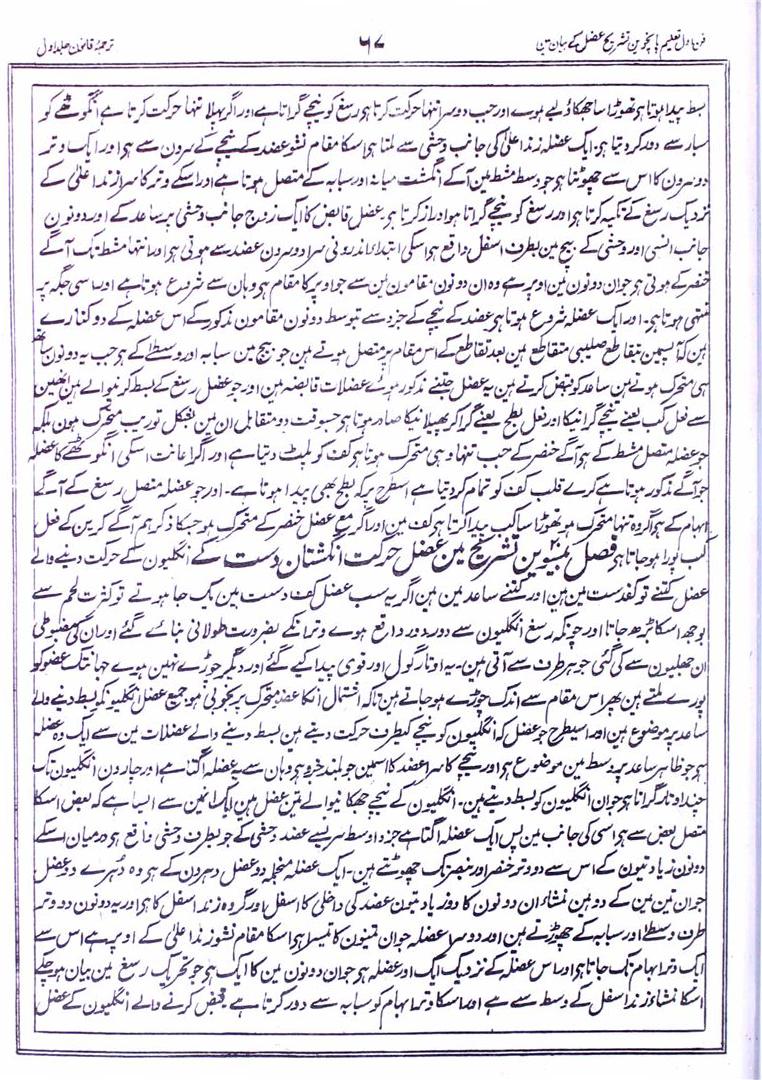 فن اول تعلیم پانچوین تشریح عضل کے بیان مین
۶۷
ترجمۂ قانون جلد اول
بسط پیدا ہوتا ہی تھوڑا سا جھکاؤ لیے ہوے اور جب دوسرا تنہا حرکت کرتا ہی رسغ کو نیچے گراتا ہے اور اگر پہلا تنہا حرکت کرتا ہے انگوٹھے کو
سبابہ سے دور کر دیتا ہی۔ ایک عضلہ زند اعلیٰ کی جانب وحشی سے ملتا ہی اسکا مقام نشو عضد کے نیچے کے سرون سے ہی اور ایک وتر
دو سرون کا اس سے چھوٹتا ہی جو وسط مشط مین آگے انگشت میانہ اور سبابہ کے متصل ہوتا ہے اور اسکے وتر کا سر از زند اعلیٰ کے
نزدیک رسغ کے تکیہ کرتا ہی اور رسغ کو نیچے گراتا ہوا دراز کرتا ہی عضل قابض کا ایک زوج جانب وحشی پر ساعد کے اور دونون
جانب انسی اور وحشی کے بیچ مین بطرف اسفل واقع ہی اسکی ابتدا اندرونی سر ا دو سرون عضد سے ہوتی ہی اور انتہا مشط تک آگے
خنصر کے ہوتی ہی جوان دونون مین اوپر ہے وہ ان دونون مقامون مین سے جو اوپر کا مقام ہی وہان سے شروع ہوتا ہے اور اسی جگہ پر
منتہی ہوتا ہی۔ اور ایک عضلہ شروع ہوتا ہی عضد کے نیچے کے جزو سے متوسط دونون مقامون مذکور کے اس عضلہ کے دو کنارے
ہین کہ آپسمین بتقاطع صلیبی متقاطع ہین بعد تقاطع کے اس مقام پر متصل ہوتے ہین جو بیچ مین سبابہ اور وسطے کے ہی جب یہ دونون ساتھ
ہی متحرک ہوتے ہین ساعد کو قبض کرتے ہین یہ عضل جتنے مذکور ہوئے عضلات قابضہ ہین اور جو عضل رسغ کے بسط کرنیوالے ہین انھین
سے فعل کب یعنے نیچے گرانیکا اور فعل بطح یعنے گرا کر پھیلانیکا صادر ہوتا ہی جسوقت دو متقابل ان مین بشکل توریب متحرک ہون بلکہ
جو عضلہ متصل مشط کے ہی آگے خنصر کے جب تنہا وہی متحرک ہوتا ہی کف کو پلٹ دیتا ہے اور اگر اعانت اسکی انگوٹھے کا عضلہ
جو آگے مذکور ہوتا ہے کرے قلب کف کو تمام کر دیتا ہے اسطرح پر کہ بطح بھی پیدا ہوتا ہے۔ اور جو عضلہ متصل رسغ کے آگے
ابہام کے ہی اگر وہ تنہا متحرک ہو تھوڑا سا کب پیدا کرتا ہی کف مین اور اگر مع عضل خنصر کے متحرک ہو جسکا ذکر ہم آگے کرین گے فعل
کب پورا ہو جاتا ہی فصل بیسوین تشریح مین عضل حرکت انگشتان دست کے انگلیون کے حرکت دینے والے
عضل کتنے تو کفدست مین ہین اور کتنے ساعد مین ہین اگر یہ سب عضل کف دست مین یک جا ہوتے تو کثرت لحم سے
بوجھ اسکا بڑھ جاتا اور چونکہ رسغ انگلیون سے دور دور واقع ہوے وتر انکے بضرورت طولانی بنائے گئے اور ان کی مضبوطی
ان جھلیون سے کی گئی جو ہر طرف سے آتی ہین۔ یہ اوتار گول اور قوی پیدا کیے گئے اور دیگر چوڑے نہین ہوے جہانتک عضو کو
پورے ملتے ہین پھر اس مقام سے اندک چوڑے ہو جاتے ہین تا کہ اشتمال انکا عضو متحرک پر بخوبی ہو جمیع عضل انگلیونکو بسط دینے والے
ساعد پر موضوع ہین اور اسیطرح جو عضل کہ انگلیون کو نیچے کیطرف حرکت دیتے ہین بسط دینے والے عضلات مین سے ایک وہ عضلہ
ہی جو ظاہر ساعد پر وسط مین موضوع ہی اور نیچے کا سرا عضد کا اسمین جو بلند جزو ہی وہان سے یہ عضلہ اگتا ہے اور چارون انگلیون تک
چند اوتار گراتا ہی جوان انگلیون کو بسط دیتے ہین۔ انگلیون کے نیچے جھکانیوالے تین عضل ہین ایک انمین سے ایسا ہے کہ بعض اسکا
متصل بعض سے ہی اسی کی جانب مین پس ایک عضلہ اگتا ہے جزو اوسط سر یسے عضد وحشی کے جو بطرف وحشی واقع ہی درمیان اسکے
دونون زیادتیون کے اس سے دو وتر خنصر اور بنصر تک چھوٹتے ہین۔ ایک عضلہ منجملہ دو عضل دہرون کے ہی وہ دُہرے دو عضل
جوان تین مین کے دو ہین نشاء ان دونون کا دو زیادتیون عضد کی داخلی کا اسفل اور گروہ زند اسفل کا ہی اور یہ دونون دو وتر
طرف وسطے اور سبابہ کے چھوڑتے ہین اور دوسرا عضلہ جوان تینون کا تیسرا ہی اسکا مقام نشو زند اعلیٰ کے اوپر ہے اس سے
ایک وتر ابہام تک جاتا ہی اور اس عضلہ کے نزدیک ایک اور عضلہ ہی جوان دونون مین کا ایک ہی جو تحریک رسغ مین بیان ہو چکے
اسکا نشاء زند اسفل کے وسط سے ہے اور اسکا وتر ابہام کو سبابہ سے دور کرتا ہے۔ قبض کرنے والے انگلیون کے عضل